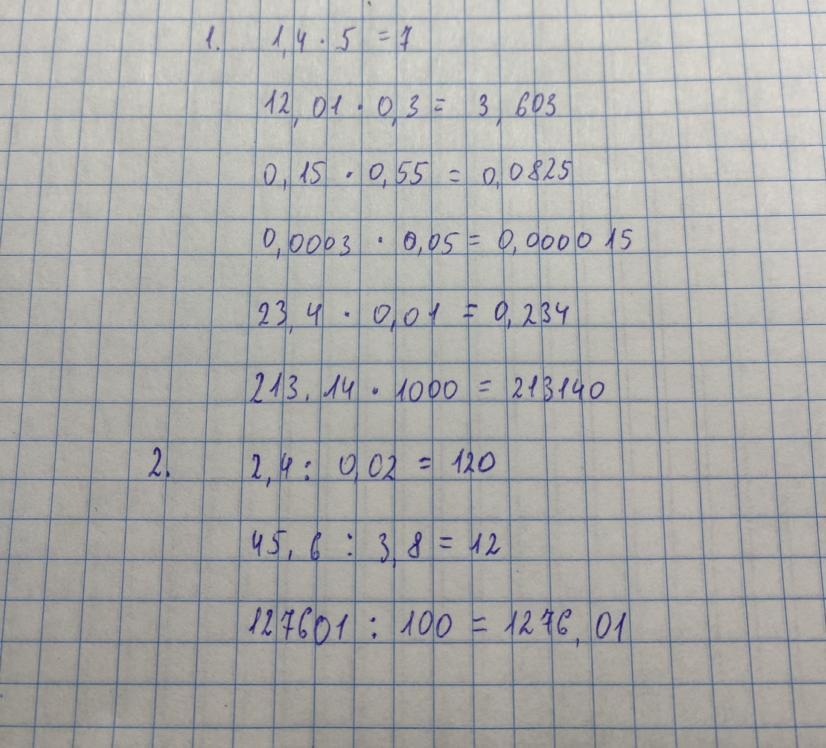 1. 1,4 · 5 = 7
12,01 · 0,3 = 3,603
0,15 · 0,55 = 0,0825
0,0003 · 0,05 = 0,000015
23,4 · 0,01 = 0,234
213,14 · 1000 = 213140
2. 2,4 : 0,02 = 120
45,6 : 3,8 = 12
127601 : 100 = 1276,01